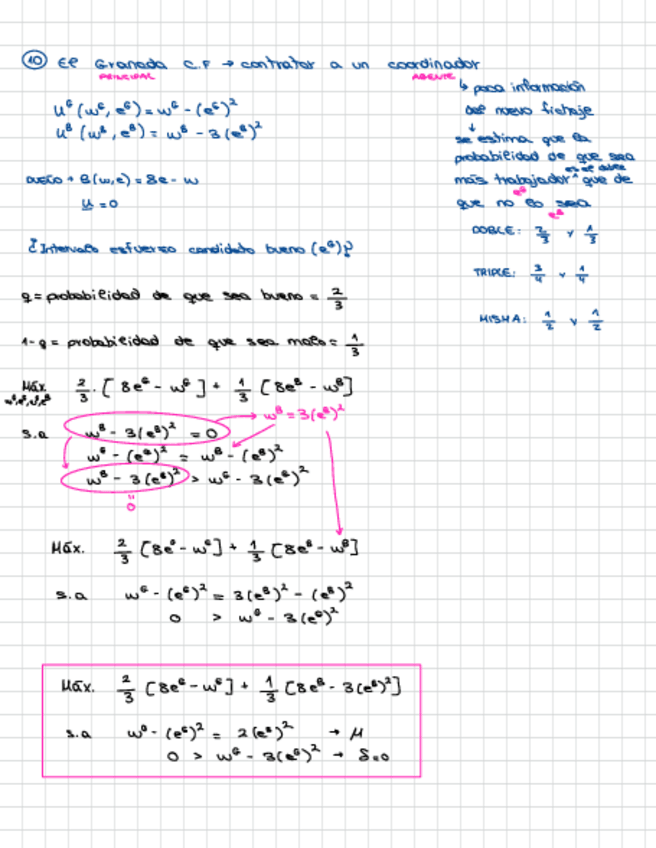 10 El Granada C.F → contratar a un coordinador
PRINCIPAL
AGENTE
↳ poca información
del nuevo fichaje
↓
se estima que la
probabilidad de que sea
es el doble
más trabajador que de
e^G
que no lo sea
e^B
DOBLE: 2/3 y 1/3
TRIPLE: 3/4 y 1/4
MISMA: 1/2 y 1/2
U^G (w^G, e^G) = w^G - (e^G)^2
U^B (w^B, e^B) = w^B - 3(e^B)^2
DUEÑO → B(w,e) = 8e - w
u = 0
¿Intervalo esfuerzo candidato bueno (e^G)?
q = probabilidad de que sea bueno = 2/3
1-q = probabilidad de que sea malo = 1/3
Máx. 2/3 · [8e^G - w^G] + 1/3 [8e^B - w^B]
w^G, e^G, w^B, e^B
s.a w^B - 3(e^B)^2 = 0 → w^B = 3(e^B)^2
w^G - (e^G)^2 = w^B - (e^B)^2
w^B - 3(e^B)^2 > w^G - 3(e^G)^2
"
0
Máx. 2/3 [8e^G - w^G] + 1/3 [8e^B - w^B]
s.a w^G - (e^G)^2 = 3(e^B)^2 - (e^B)^2
0 > w^G - 3(e^G)^2
Máx. 2/3 [8e^G - w^G] + 1/3 [8e^B - 3(e^B)^2]
s.a w^G - (e^G)^2 = 2(e^B)^2 → μ
0 > w^G - 3(e^G)^2 → δ=0